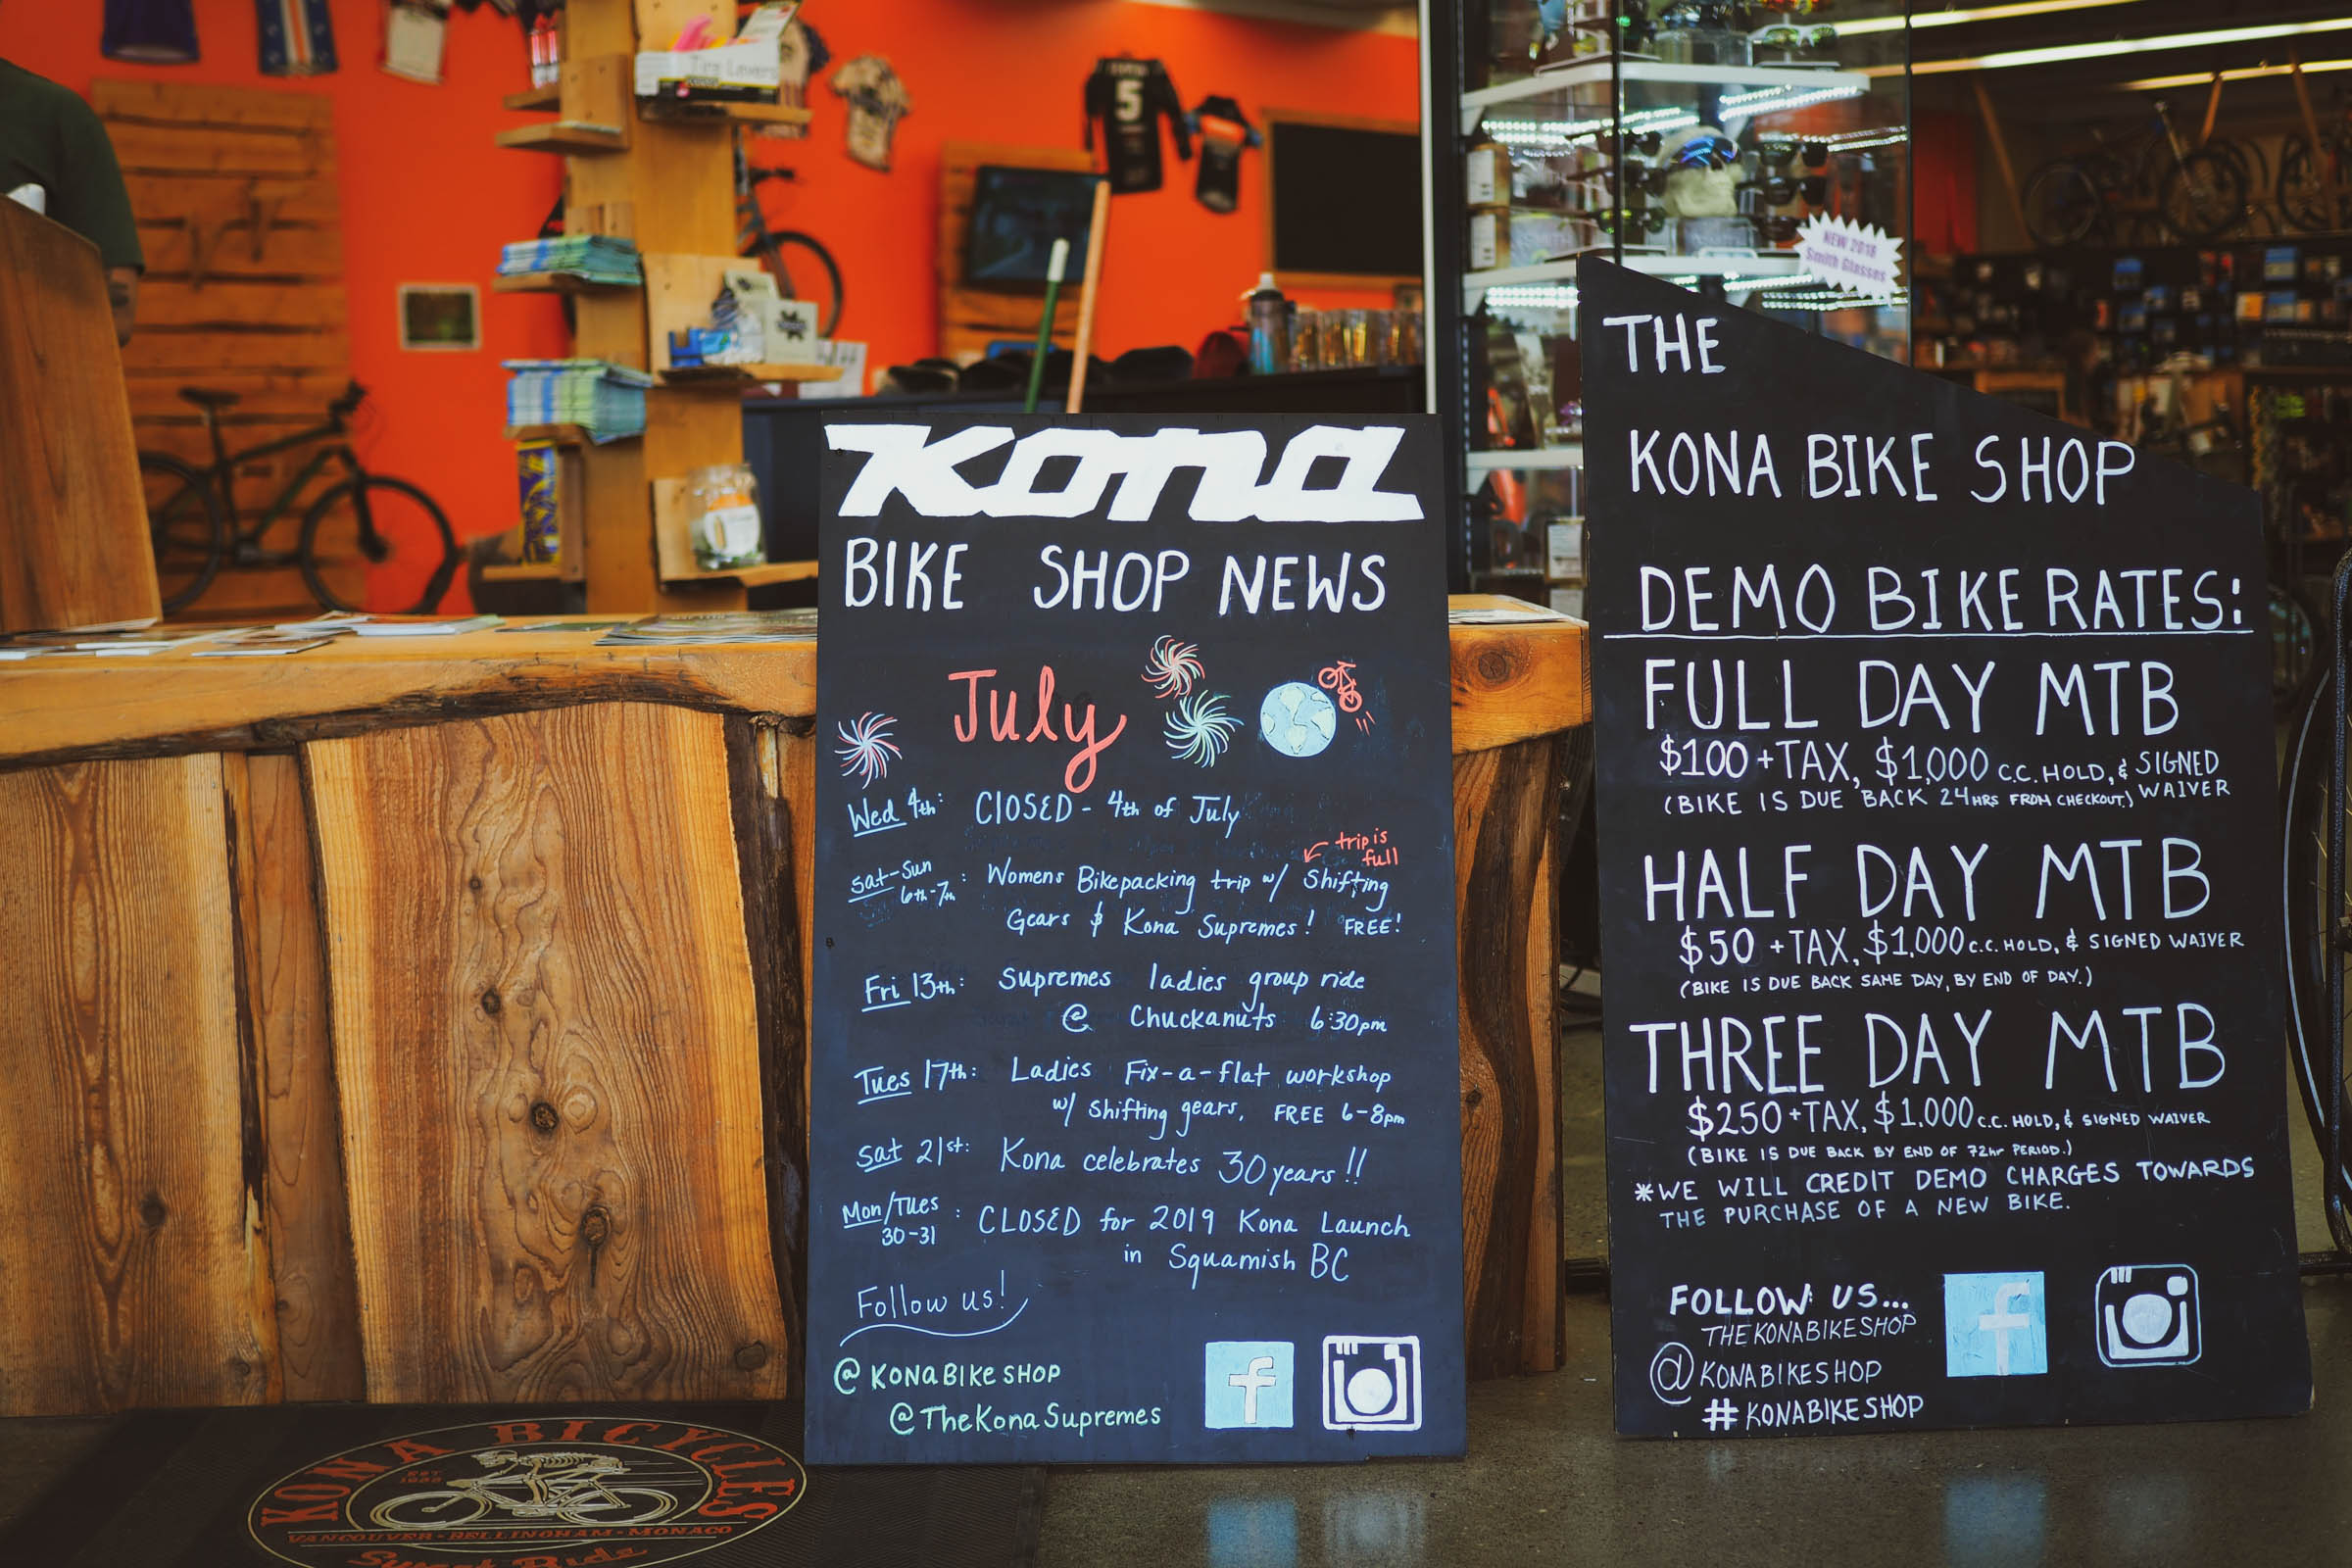 Tire Levers
5
NEW 2018
Smith Glasses
kona
BIKE SHOP NEWS
July
Wed 4th: ClOSED - 4th of July
trip is
full
Sat-Sun
6th-7th : Womens Bikepacking trip w/ Shifting
Gears & Kona Supremes! FREE!
Fri 13th: Supremes ladies group ride
@ Chuckanuts 6:30pm
Tues 17th: Ladies Fix-a-flat workshop
w/ Shifting gears, FREE 6-8pm
Sat 21st: Kona celebrates 30 years!!
Mon/Tues
30-31 : CLOSED for 2019 Kona Launch
in Squamish BC
Follow us!
@ KONA BIKE SHOP
@TheKonaSupremes
f
THE
KONA BIKE SHOP
DEMO BIKE RATES:
FULL DAY MTB
$100 + TAX, $1,000 C.C. HOLD, & SIGNED
(BIKE IS DUE BACK 24HRS FROM CHECKOUT.) WAIVER
HALF DAY MTB
$50 + TAX, $1,000 C.C. HOLD, & SIGNED WAIVER
(BIKE IS DUE BACK SAME DAY, BY END OF DAY.)
THREE DAY MTB
$250 + TAX, $1,000 C.C. HOLD, & SIGNED WAIVER
(BIKE IS DUE BACK BY END OF 72hr PERIOD.)
*WE WILL CREDIT DEMO CHARGES TOWARDS
THE PURCHASE OF A NEW BIKE.
FOLLOW US...
THEKONABIKESHOP
@KONABIKESHOP
#KONABIKESHOP
f
KONA BICYCLES
EST
1988
VANCOUVER - BELLINGHAM - MONACO
Sweet Ride